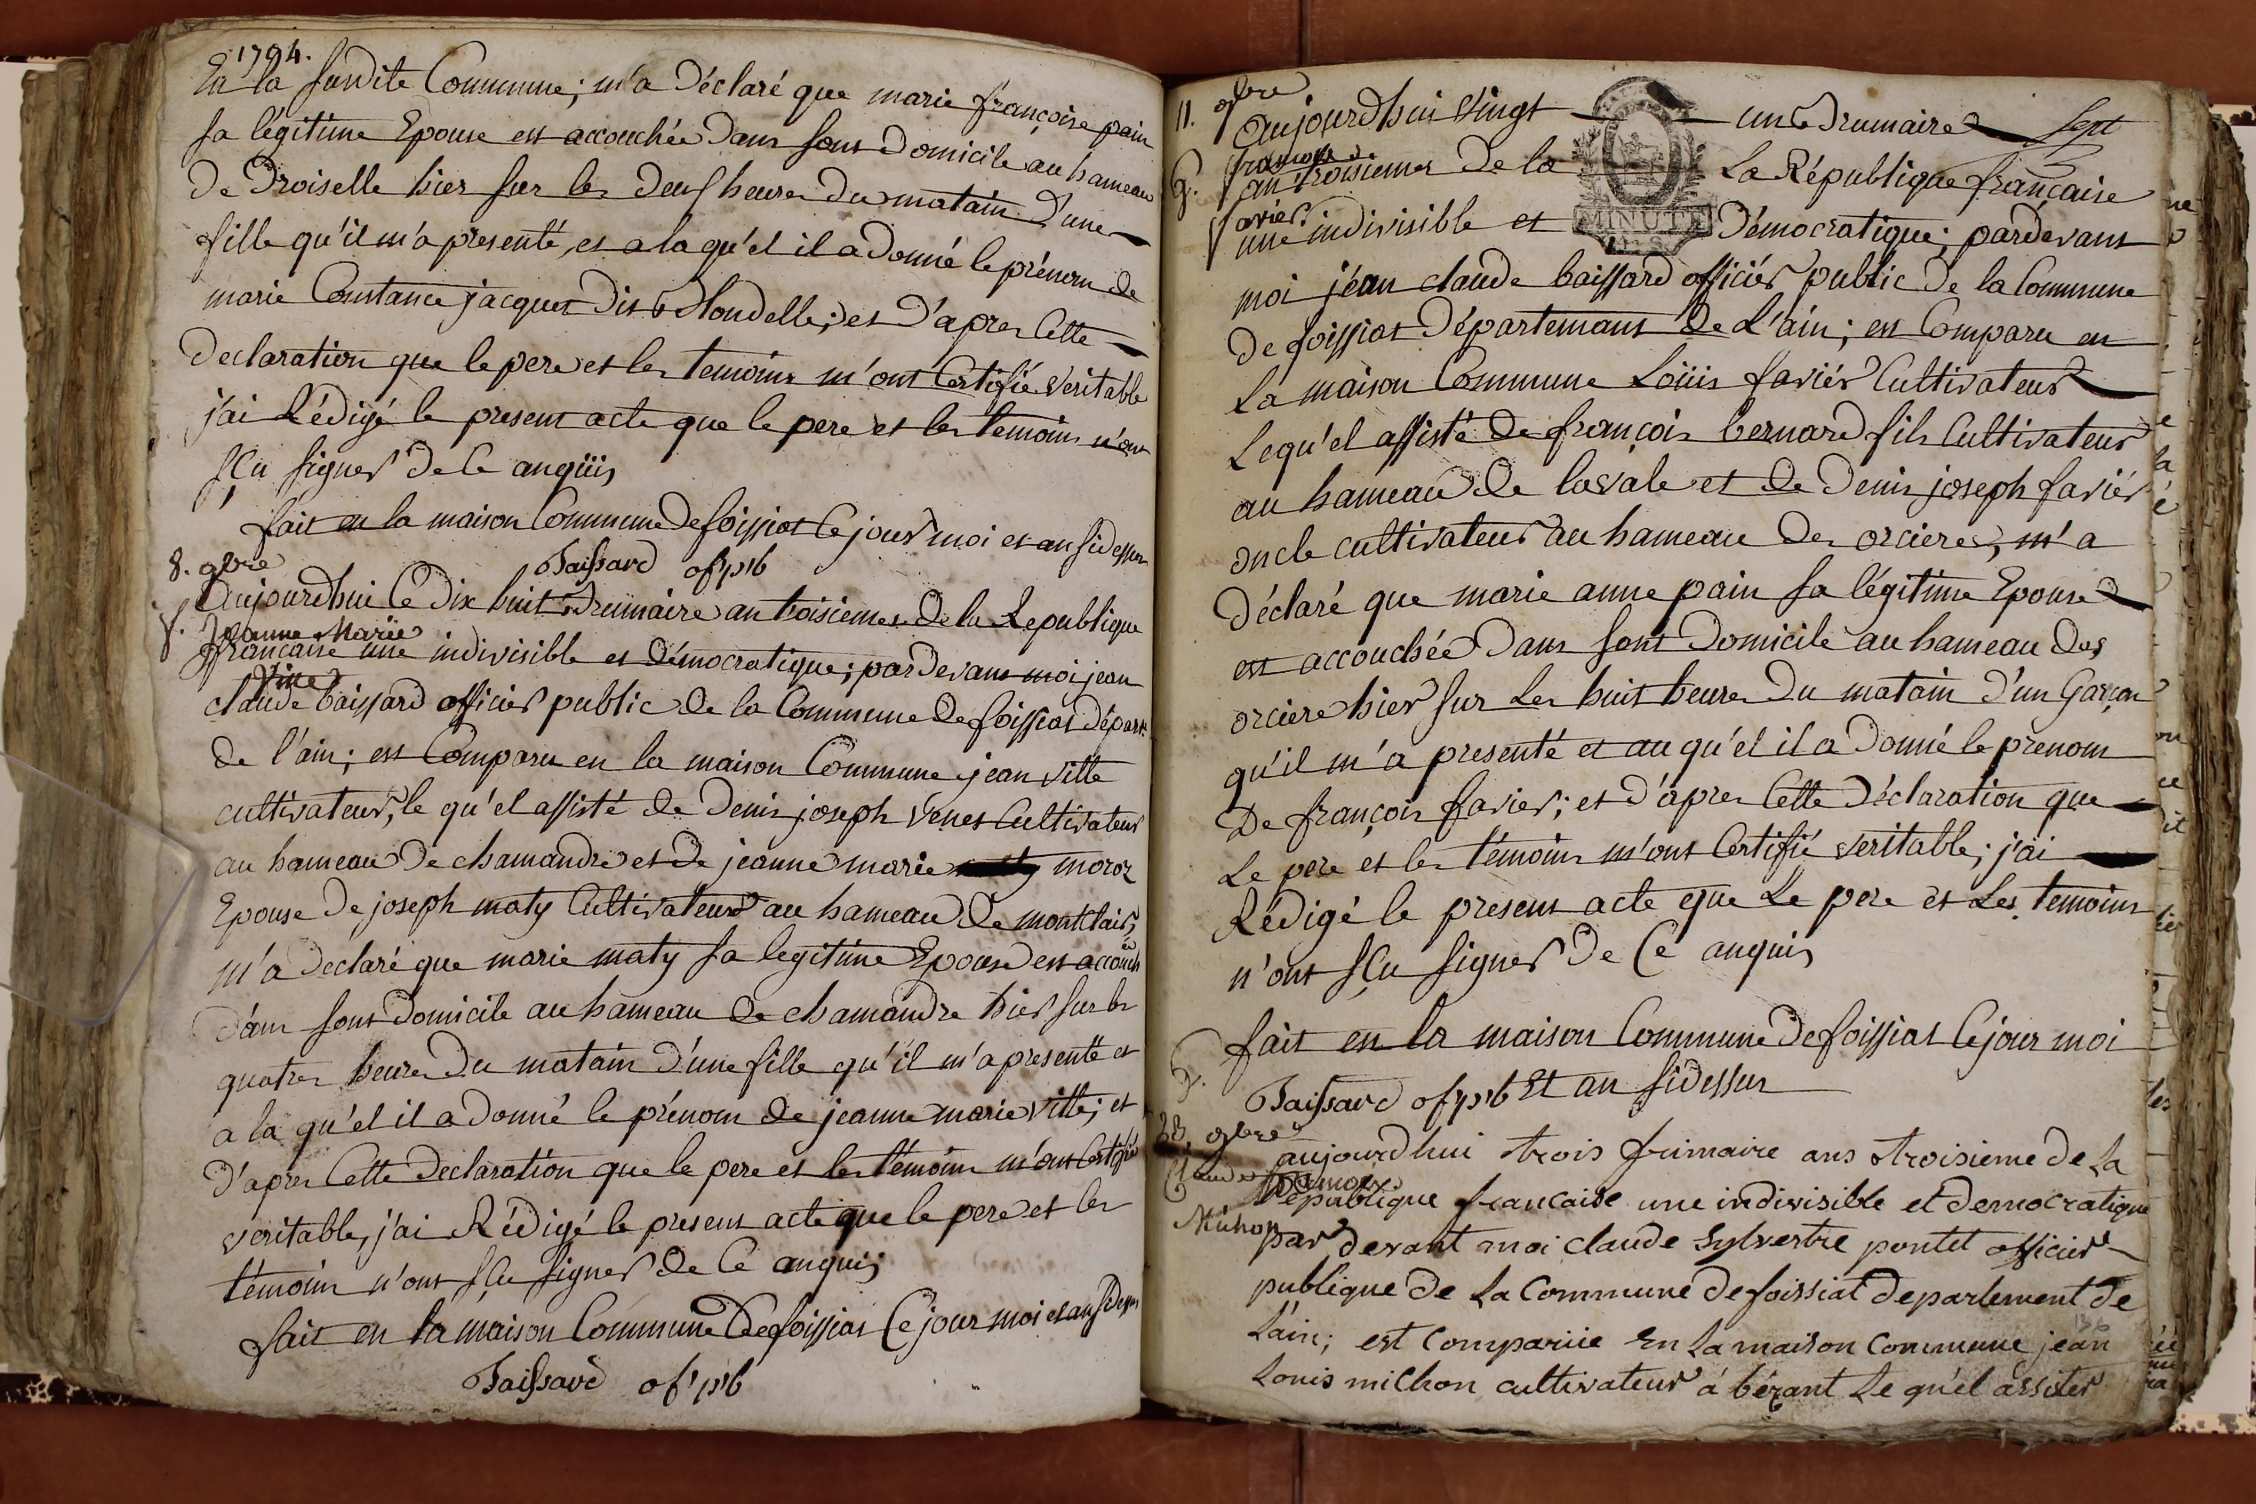 1794.
En la susdite Commune; m'a Déclaré que marie françoise pain
sa légitime Epouse est accouchée Dans sont Domicile au hameau
De Droiselle hier sur les Deus heures Du matain D'une
fille qu'il m'a presenté, et a la qu'el il a Donné le prénom de
marie Constance jacquet Dit Blondelle; et D'apres Cette
Declaration que le pere et les temoins m'ont Certifié veritable
j'ai Rédigé le present acte que le pere et les temoins n'ont
sçu signer De Ce anqüis
fait en la maison Commune De foissiat Ce jour moi et an sidessus
Baissard of pb
8. 9bre
Aujourdhui Ce Dix huit Brumaire an troisiemes De la Republique
Jeanne Marie
française une indivisible et Démocratique; par Devant moi jean
Ville
claude baissard officier public De la Commune De foissiat Départ.
De l'ain; est Comparu en la maison Commune jean ville
cultivateur, le qu'el assisté De Denis joseph venet Cultivateur
au hameau De chamandre et De jeanne marie moroz
Epouse De joseph maty Cultivateur au hameau De montclair,
m'a Declaré que marie maty sa legitime Epouse est accouchée
Dans sont Domicile au hameau De chamandre hier sur les
quatres heures Du matain D'une fille qu'il m'a presenté et
a la qu'el il a Donné le prénom De jeanne marie ville; et
D'apres Cette Declaration que le pere et les témoins m'ont Certifié
veritable, j'ai Rédigé le present acte que le pere et les
témoins n'ont sçu signer De Ce anquis
fait en la maison Commune De foissiat Ce jour moi et an sidessus
Baissard of pb
11. 9bre
Aujourdhui vingt un Brumaire sept
françois
an troisiemes De la La République française
favier.
une indivisible et Démocratique; pardevant
MINUTE
moi jéan claude baissard officiér public De la Commune
De foissiat Départemant De L'ain; est Comparu en
La maison Commune Loüis faviér Cultivateur
Lequ'el assisté De françois bernard fils Cultivateur
au hameau De lavale et De Denis joseph faviér
oncle cultivateur au hameau Des orcieres, m'a
Déclaré que marie anne pain sa légitime Epouse
est accouchée Dans sont Domicile au hameau Des
orciere hier sur Les huit heures Du matain D'un Garçon
qu'il m'a presenté et au qu'el il a Donné le prenom
De françois favier; et D'apres Cette Déclaration que
Le pere et les témoins m'ont Certifié veritable; j'ai
Rédigé le present acte que Le pere et Les temoins
n'ont sçu signer De Ce anquis
fait en la maison Commune De foissiat Ce jour moi
Baissard of pb Et an sidessus
23. 9bre
aujourdhui trois frimaire ans troisieme de La
Claude françois
Republique francaise une indivisible et democratique
Michon
par devant moi claude Sylvestre pontet officier
publique De La Commune De foissiat departement De
L'ain; est Comparüe En La maison Commune jean
136
Louis milhon cultivateur á bézant Le qu'el assister